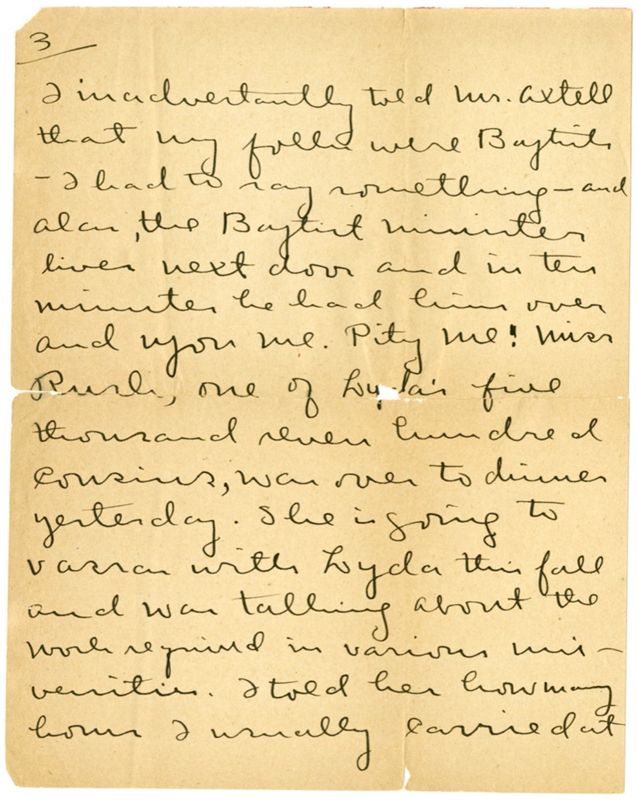 3
I inadvertantly told Mr. Axtell
that my folks were Baptists
– I had to say something – and
alas, the Baptist minister
lives next door and in ten
minutes he had him over
and upon me. Pity me! Miss
Rush, one of Lyda's five
thousand seven hundred
cousins, was over to dinner
yesterday. She is going to
Vassar with Lyda this fall
and was talking about the
work required in various uni–
versities. I told her how many
hours I usually carried at